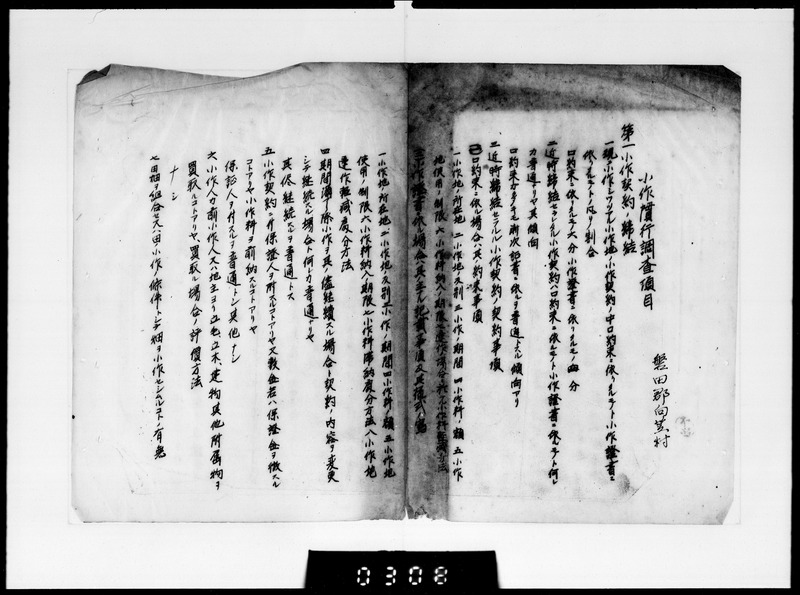 小作慣行調査項目
磐田郡向笠村
第一 小作契約ノ締結
一 現ニ小作シツツアル小作地ノ小作契約ノ中口約束ニ依リタルモノト小作證書ニ
依リタルモノトノ凡ソノ割合
口約束ニ依リタルモノ 六分 小作證書ニ依リタルモノ 四分
二 近時締結セラルル小作契約ハ口約束ニ依ルモノト小作證書ニ依ルモノト何レ
カ普通ナリヤ其傾向
口約束カ多キモ漸次証書ニ依ルヲ普通トスル傾向アリ
三 近時締結セラルル小作契約ノ契約事項
口約束ニ依ル場合ハ其ノ約束事項
一 小作地ノ所在地 二 小作地反別 三 小作ノ期間 四 小作料ノ額 五 小作
地使用ノ制限 六 小作料納入ノ期限
小作證書ニ依ル場合ハ其ノ主ナル記載事項及其様式ノ寫
一 小作地ノ所在地 二 小作地反別 三 小作ノ期間 四 小作料ノ額 五 小作地
使用ノ制限 六 小作料納入ノ期限 七 小作料滞納處分方法 八 小作地
違作輕減處分方法
四 期間滿了際小作ヲ其ノ儘継續スル場合ト契約ノ内容ヲ変更
シテ継続スル場合ト何レカ普通ナリヤ
其侭継続スルヲ普通トス
五 小作契約ニ件保證人ヲ附スルコトアリヤ又敷金若ハ保證金ヲ徴スル
コトアリヤ小作料ヲ前納スルコトアリヤ
保証人ヲ付スルヲ普通トシ其他ナシ
六 小作人カ前小作人又ハ地主ヨリ立毛立木建物其他附屬物ヲ
買取ルコトアリヤ買取ル場合ノ評價方法
ナシ
七 田畑ヲ組合セ又ハ田小作ノ條件トシテ畑ヲ小作セシムルコトノ有無
0308